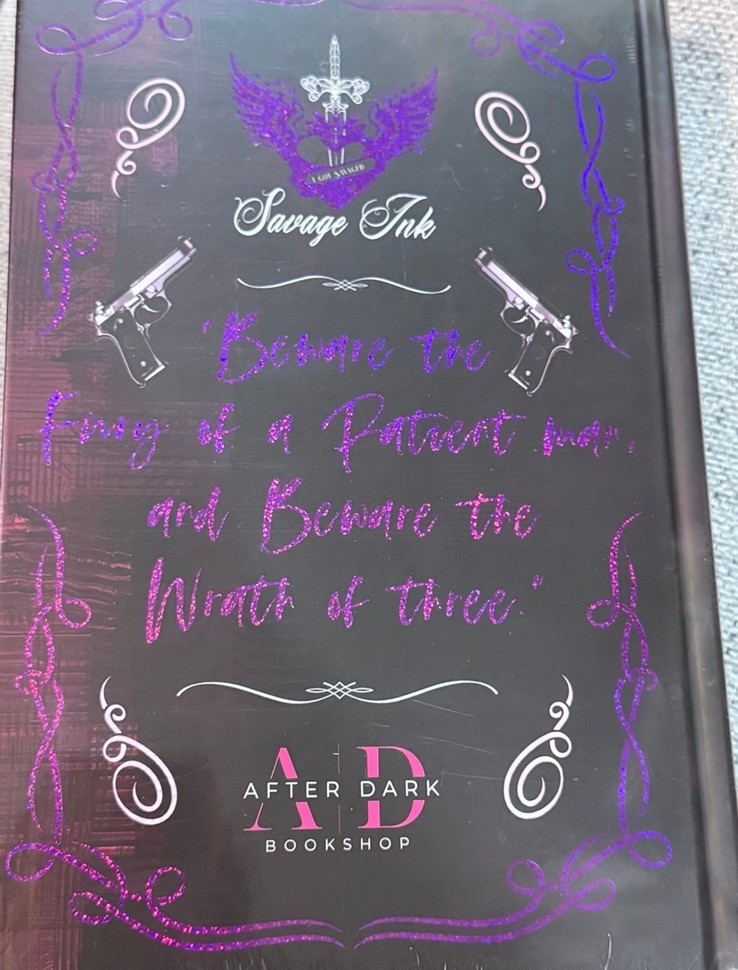 I GOT SAVAGED
Savage Ink
'Beware the
Fury of a Patient man,
and Beware the
Wrath of three.'
A D
AFTER DARK
BOOKSHOP